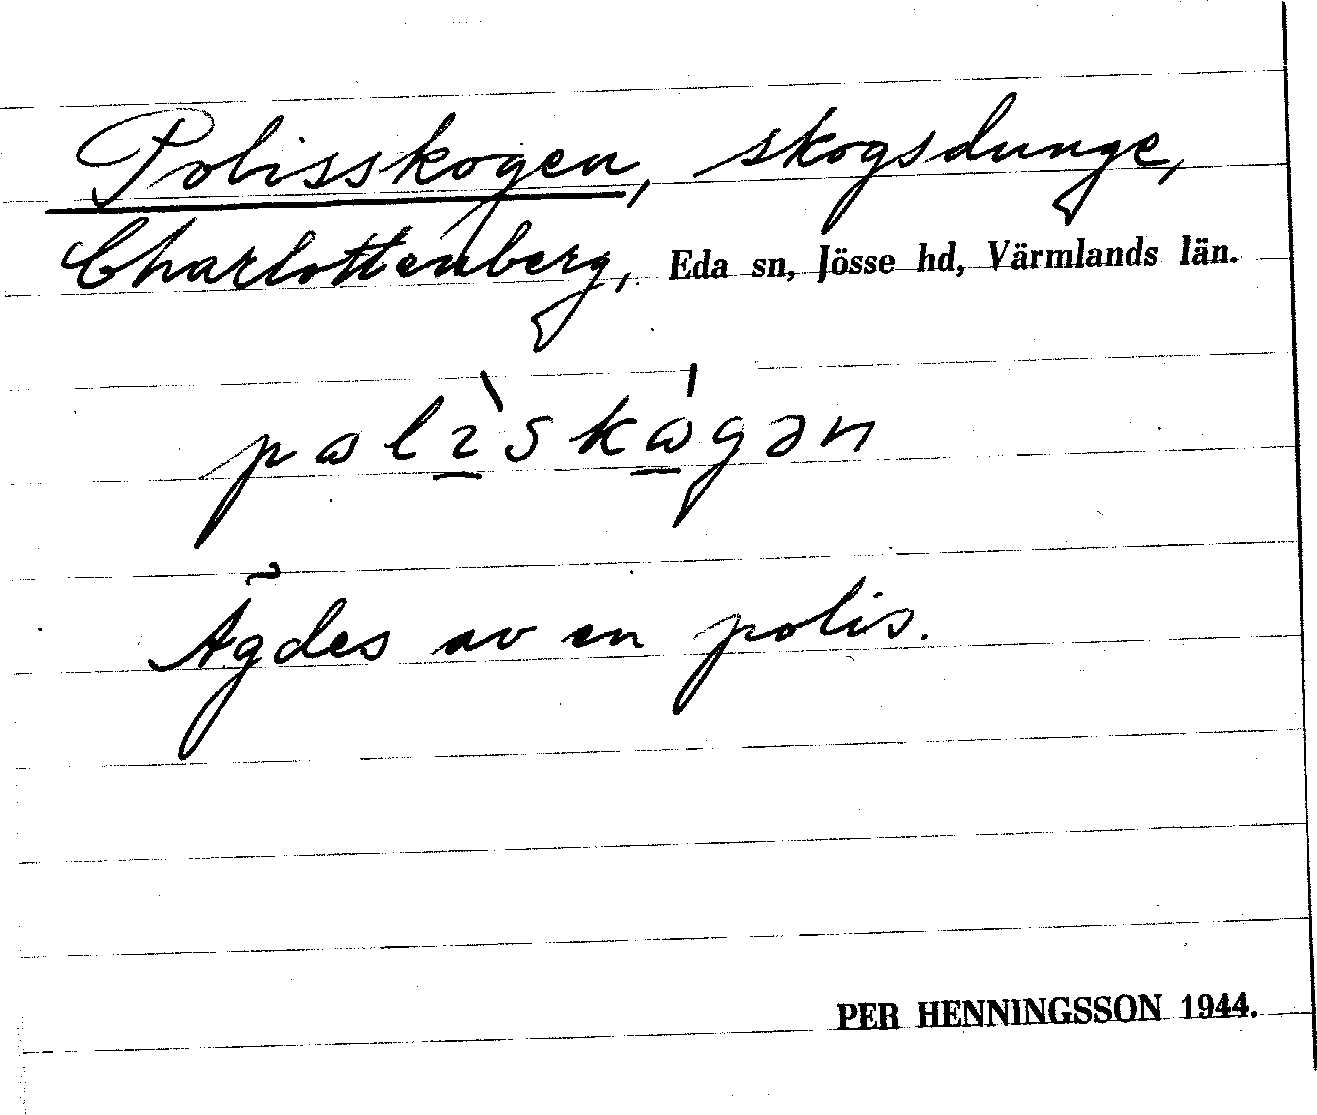 Polisskogen, skogsdunge,
Charlottenberg, Eda sn, Jösse hd, Värmlands län.
pωlı̱̀skώ̱gən
Ägdes av en polis.
PER HENNINGSSON 1944.